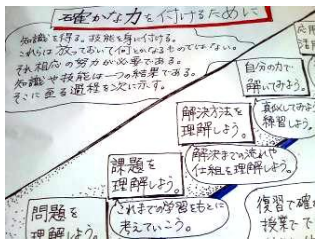 確かな力を付けるために
知識を得る。技能を身に付ける。
これらは放っておいて何とかなるものではない。
それ相応の努力が必要である。
知識や技能は一つの結果である。
そこに至る過程を次に示す。
自分の力で
解いてみよう。
真似してみよう
練習しよう。
解決方法を
理解しよう。
解決までの流れや
仕組を理解しよう。
課題を
理解しよう。
これまでの学習をもとに
考えていこう。
問題を
理解しよう。
復習で確
授業で